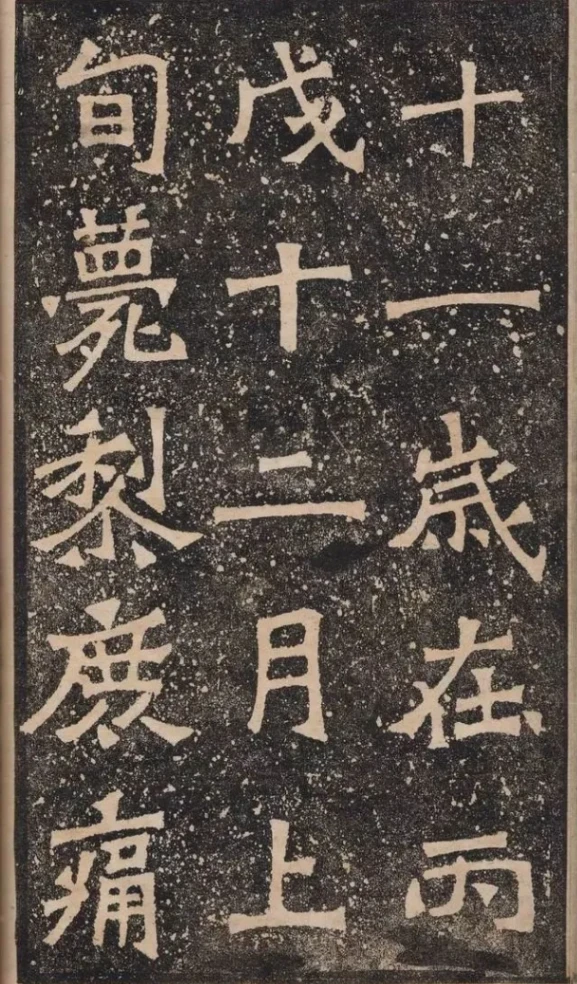 十一歳在丙
戌十二月上
旬薨黎庶痛